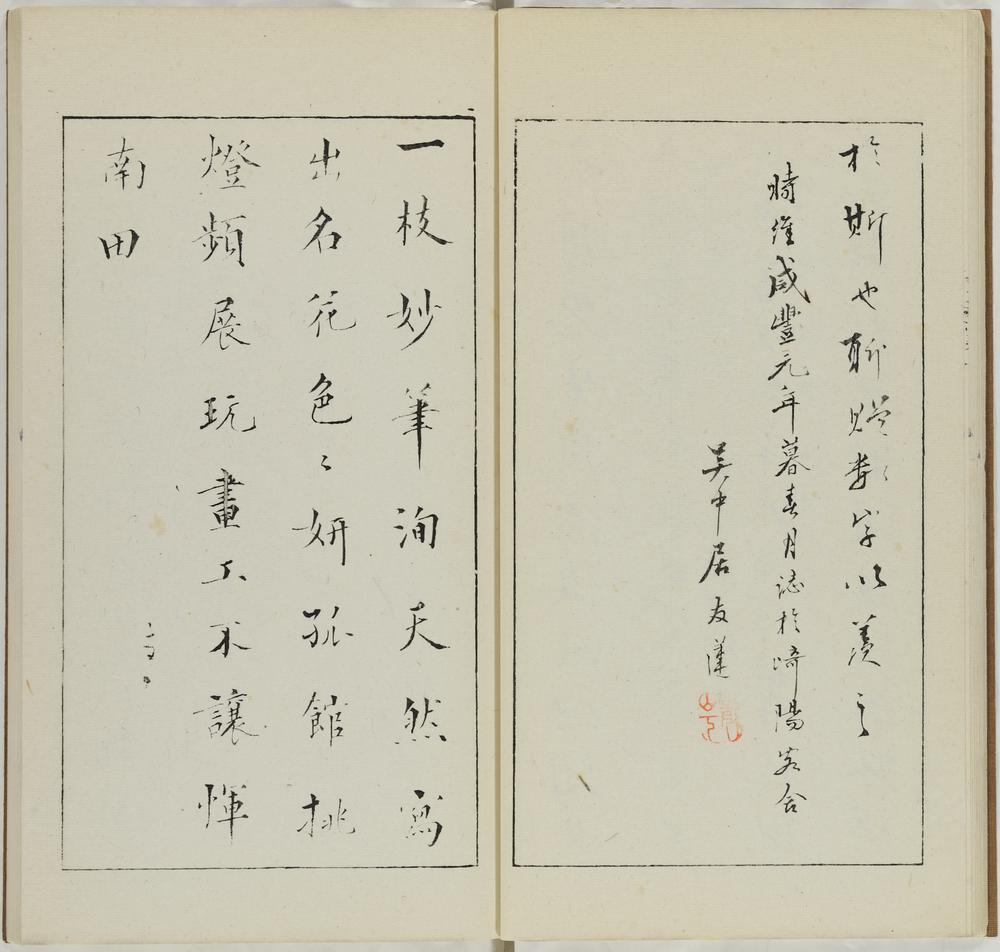 於斯也聊贈数字以羨之
時維咸豐元年暮春月誌於崎陽客舍
吴中居友蓮
一枝妙筆洵天然寫
出名花色〻妍孤館挑
燈頻展玩畫工不讓惲
南田